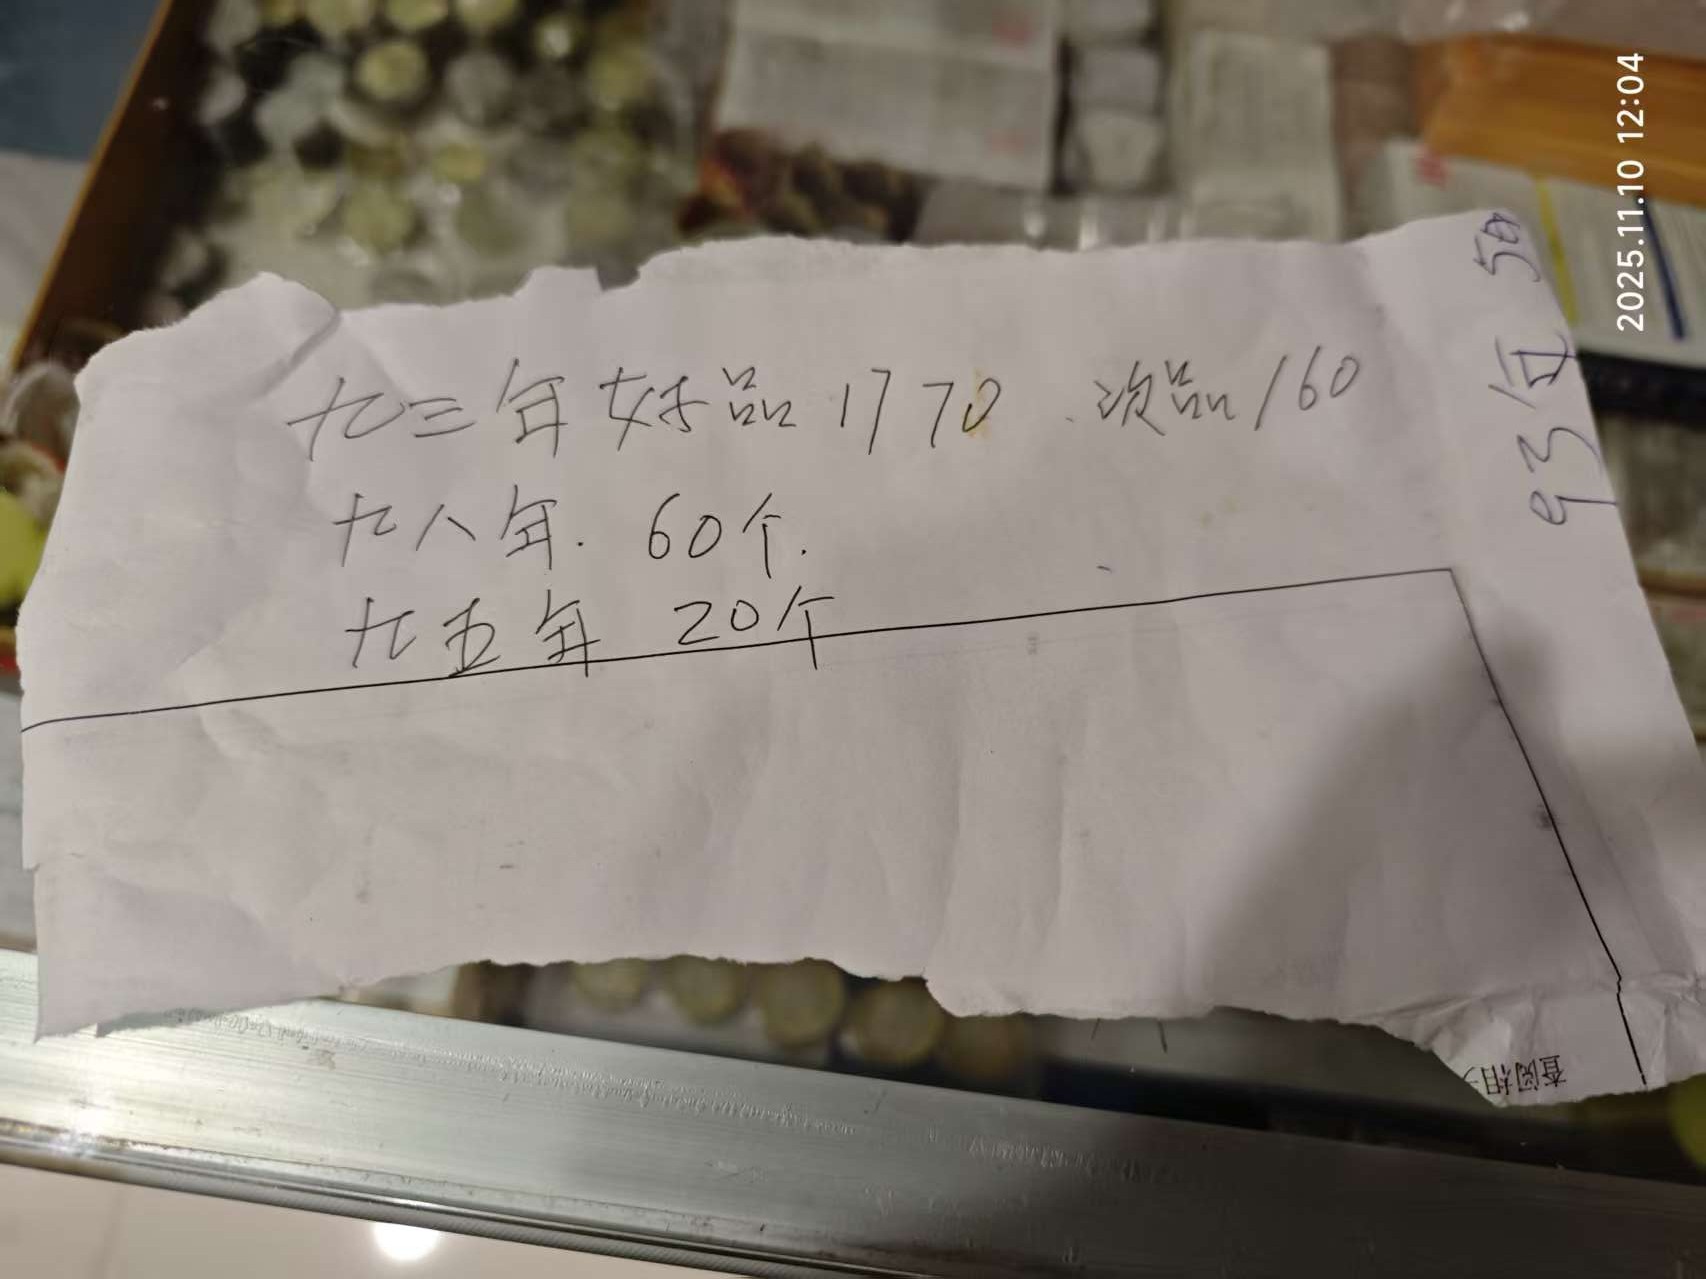 九三年好品1770 次品160
九八年. 60个.
九五年 20个
93年
查阅相
2025.11.10 12:04